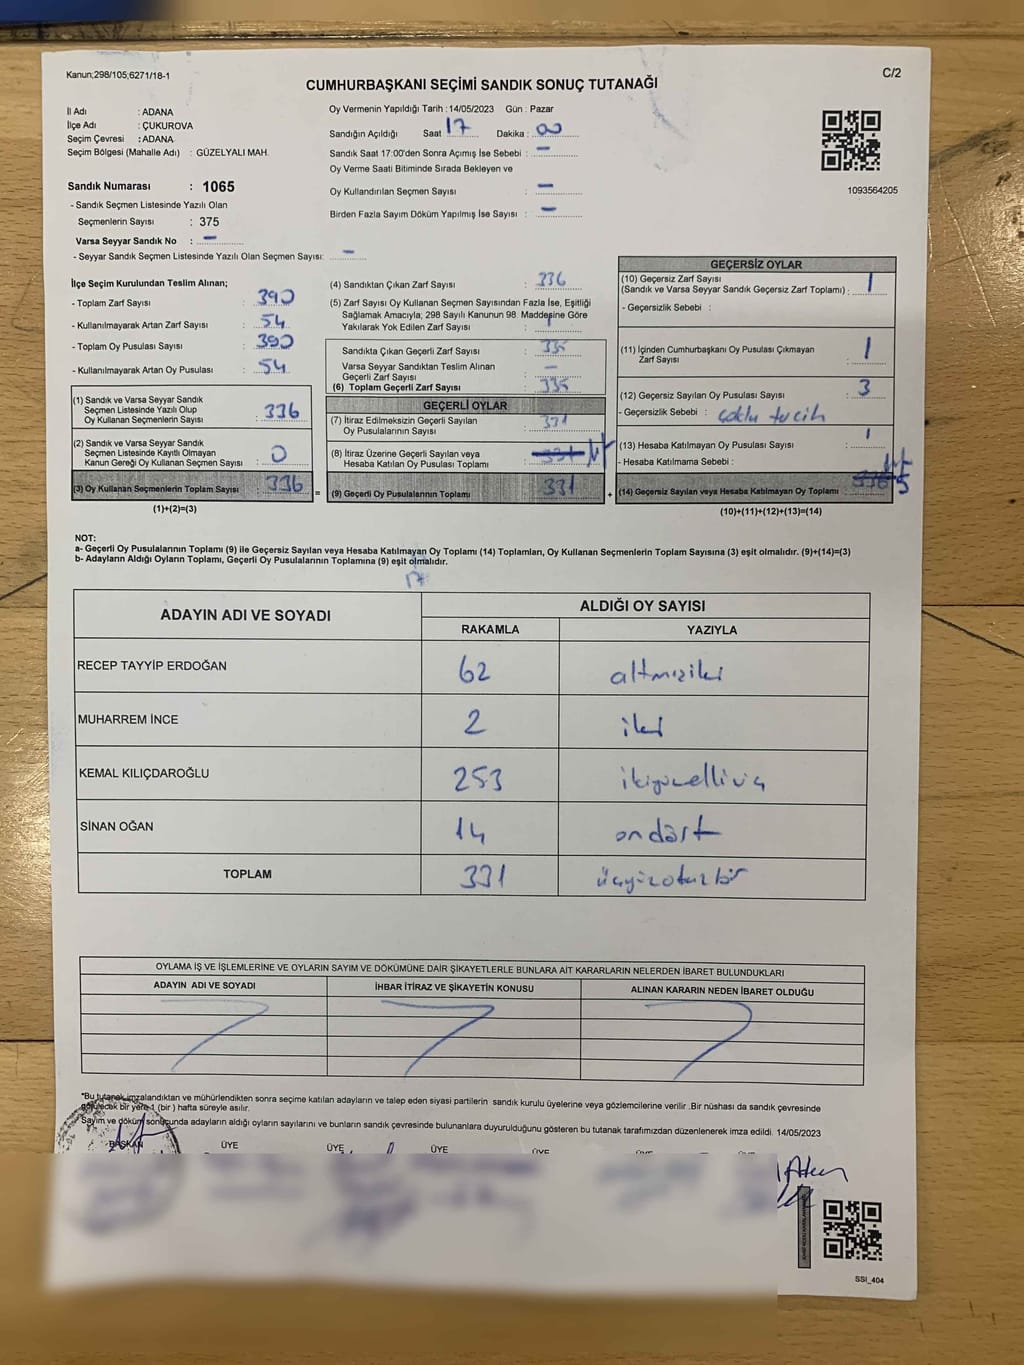 Kanun;298/105,6271/18-1
C/2
CUMHURBAŞKANI SEÇİMİ SANDIK SONUÇ TUTANAĞI
İl Adı : ADANA
İlçe Adı : ÇUKUROVA
Seçim Çevresi : ADANA
Seçim Bölgesi (Mahalle Adı) : GÜZELYALI MAH.
Sandık Numarası : 1065
- Sandık Seçmen Listesinde Yazılı Olan
Seçmenlerin Sayısı : 375
Varsa Seyyar Sandık No : -
- Seyyar Sandık Seçmen Listesinde Yazılı Olan Seçmen Sayısı: -
Oy Vermenin Yapıldığı Tarih : 14/05/2023 Gün : Pazar
Sandığın Açıldığı Saat 17 Dakika : 00
Sandık Saat 17:00'den Sonra Açımış İse Sebebi : -
Oy Verme Saati Bitiminde Sırada Bekleyen ve
Oy Kullandırılan Seçmen Sayısı : -
Birden Fazla Sayım Döküm Yapılmış İse Sayısı : -
1093564205
İlçe Seçim Kurulundan Teslim Alınan;
- Toplam Zarf Sayısı : 390
- Kullanılmayarak Artan Zarf Sayısı : 54
- Toplam Oy Pusulası Sayısı : 390
- Kullanılmayarak Artan Oy Pusulası : 54
(1) Sandık ve Varsa Seyyar Sandık
Seçmen Listesinde Yazılı Olup
Oy Kullanan Seçmenlerin Sayısı : 336
(2) Sandık ve Varsa Seyyar Sandık
Seçmen Listesinde Kayıtlı Olmayan
Kanun Gereği Oy Kullanan Seçmen Sayısı : 0
(3) Oy Kullanan Seçmenlerin Toplam Sayısı : 336
(1)+(2)=(3)
(4) Sandıktan Çıkan Zarf Sayısı : 336
(5) Zarf Sayısı Oy Kullanan Seçmen Sayısından Fazla İse, Eşitliği
Sağlamak Amacıyla; 298 Sayılı Kanunun 98. Maddesine Göre
Yakılarak Yok Edilen Zarf Sayısı :
Sandıkta Çıkan Geçerli Zarf Sayısı : 335
Varsa Seyyar Sandıktan Teslim Alınan
Geçerli Zarf Sayısı : -
(6) Toplam Geçerli Zarf Sayısı : 335
GEÇERLİ OYLAR
(7) İtiraz Edilmeksizin Geçerli Sayılan
Oy Pusulalarının Sayısı : 331
(8) İtiraz Üzerine Geçerli Sayılan veya
Hesaba Katılan Oy Pusulası Toplamı : 331
= (9) Geçerli Oy Pusulalarının Toplamı : 331 +
GEÇERSİZ OYLAR
(10) Geçersiz Zarf Sayısı
(Sandık ve Varsa Seyyar Sandık Geçersiz Zarf Toplamı) : 1
- Geçersizlik Sebebi :
(11) İçinden Cumhurbaşkanı Oy Pusulası Çıkmayan
Zarf Sayısı : 1
(12) Geçersiz Sayılan Oy Pusulası Sayısı : 3
- Geçersizlik Sebebi : çoklu tercih
(13) Hesaba Katılmayan Oy Pusulası Sayısı :
- Hesaba Katılmama Sebebi :
(14) Geçersiz Sayılan veya Hesaba Katılmayan Oy Toplamı : 5
(10)+(11)+(12)+(13)=(14)
NOT:
a- Geçerli Oy Pusulalarının Toplamı (9) ile Geçersiz Sayılan veya Hesaba Katılmayan Oy Toplamı (14) Toplamları, Oy Kullanan Seçmenlerin Toplam Sayısına (3) eşit olmalıdır. (9)+(14)=(3)
b- Adayların Aldığı Oyların Toplamı, Geçerli Oy Pusulalarının Toplamına (9) eşit olmalıdır.
ADAYIN ADI VE SOYADI
ALDIĞI OY SAYISI
RAKAMLA YAZIYLA
RECEP TAYYİP ERDOĞAN 62 altmışiki
MUHARREM İNCE 2 iki
KEMAL KILIÇDAROĞLU 253 ikiyüzelliüç
SİNAN OĞAN 14 ondört
TOPLAM 331 üçyüzotuzbir
OYLAMA İŞ VE İŞLEMLERİNE VE OYLARIN SAYIM VE DÖKÜMÜNE DAİR ŞİKAYETLERLE BUNLARA AİT KARARLARIN NELERDEN İBARET BULUNDUKLARI
ADAYIN ADI VE SOYADI İHBAR İTİRAZ VE ŞİKAYETİN KONUSU ALINAN KARARIN NEDEN İBARET OLDUĞU
*Bu tutanak imzalandıktan ve mühürlendikten sonra seçime katılan adayların ve talep eden siyasi partilerin sandık kurulu üyelerine veya gözlemcilerine verilir .Bir nüshası da sandık çevresinde
görülecek bir yere 1 (bir ) hafta süreyle asılır.
Sayım ve döküm sonucunda adayların aldığı oyların sayılarını ve bunların sandık çevresinde bulunanlara duyurulduğunu gösteren bu tutanak tarafımızdan düzenlenerek imza edildi. 14/05/2023
BAŞKAN ÜYE ÜYE ÜYE ÜYE
SSİ_404